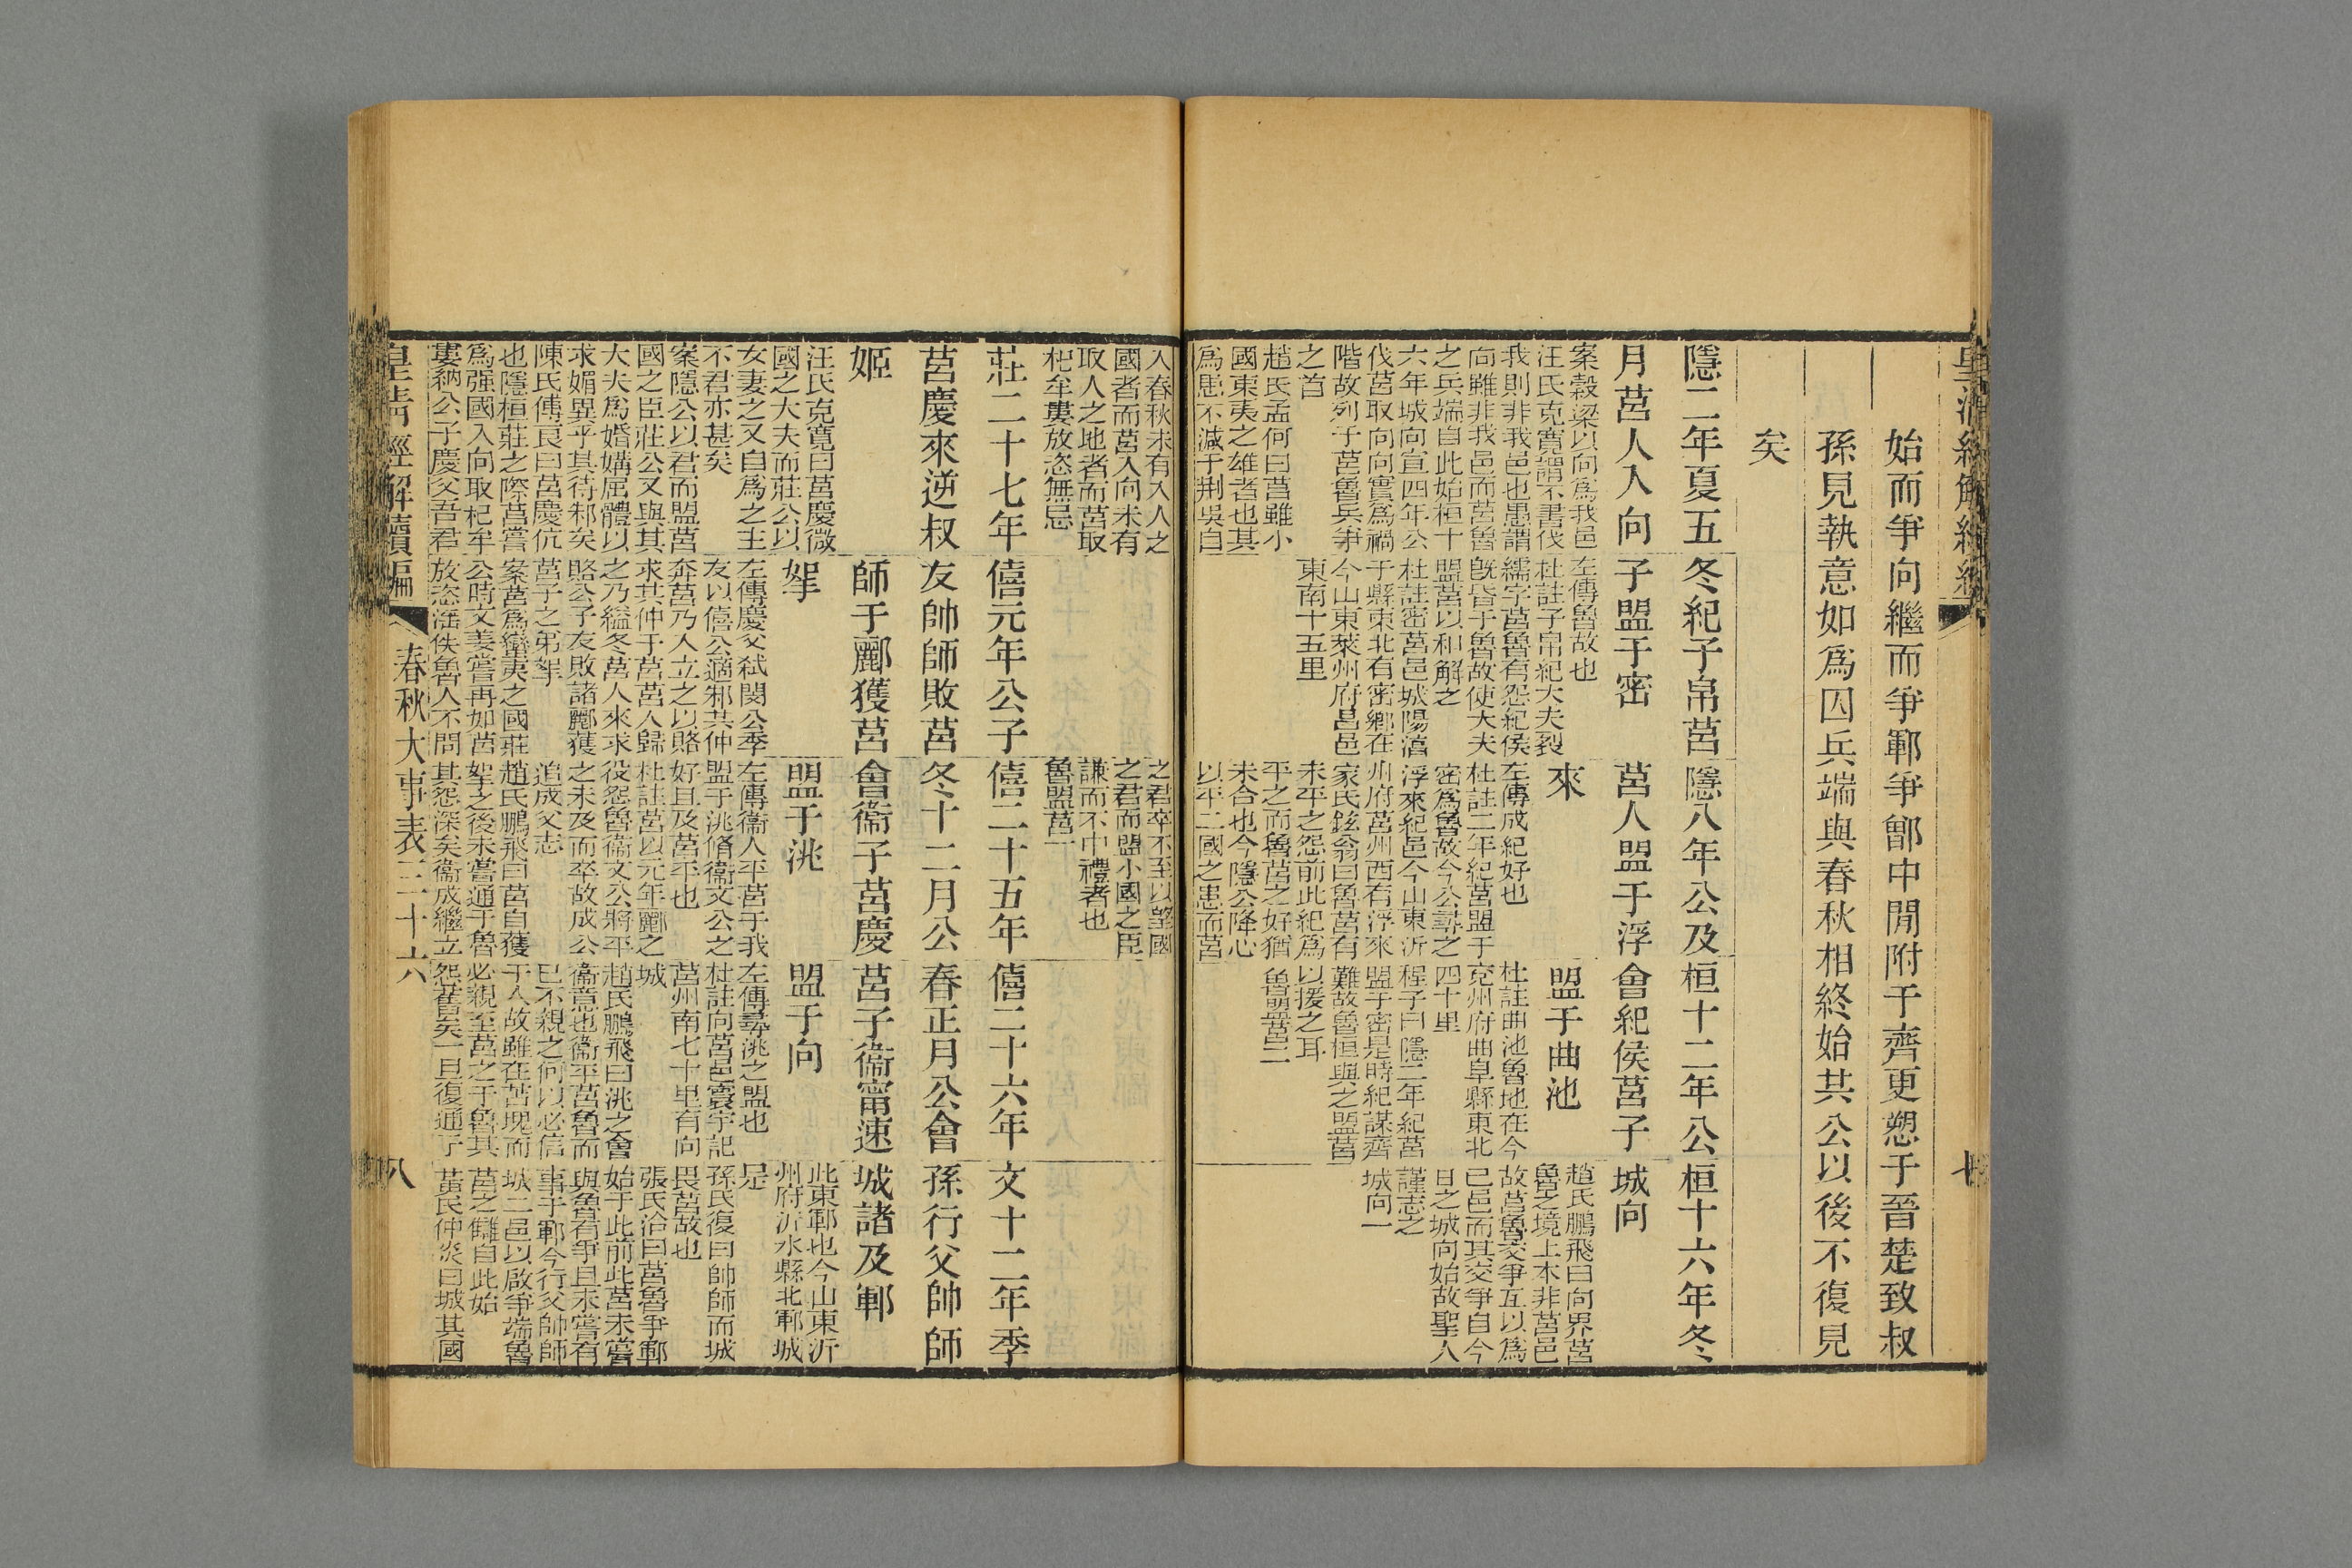 始而爭向繼而爭鄆爭鄫中閒附于齊更愬于晉楚致叔
孫見執意如爲囚兵端與春秋相終始共公以後不復見
矣
隱二年夏五
月莒人入向
案穀梁以向爲我邑
汪氏克寬謂不書伐
我則非我邑也愚謂
向雖非我邑而莒魯
之兵端自此始桓十
六年城向宣四年公
伐莒取向向實爲禍
階故列于莒魯兵爭
之首
趙氏孟何曰莒雖小
國東夷之雄者也其
爲患不減于荆吳自
入春秋未有入人之
國者而莒人向未有
取人之地者而莒取
杞牟婁放恣無忌
冬紀子帛莒
子盟于密
左傳魯故也
杜註子帛紀大夫裂
繻字莒魯有怨紀侯
旣昏于魯故使大夫
盟莒以和解之
杜註密莒邑城陽淳
于縣東北有密鄉在
今山東萊州府昌邑
東南十五里
隱八年公及
莒人盟于浮
來
左傳成紀好也
杜註二年紀莒盟于
密爲魯故今公尋之
浮來紀邑今山東沂
州府莒州西有浮來
家氏鉉翁曰魯莒有
未平之怨前此紀爲
平之而魯莒之好猶
未合也今隱公降心
以平二國之患而莒
之君卒不至以望國
之君而盟小國之臣
謙而不中禮者也
魯盟莒一
桓十二年公
會紀侯莒子
盟于曲池
杜註曲池魯地在今
兗州府曲阜縣東北
四十里
程子曰隱二年紀莒
盟于密是時紀謀齊
難故魯桓與之盟莒
以援之耳
魯盟莒二
桓十六年冬
城向
趙氏鵬飛曰向界莒
魯之境上本非莒邑
故莒魯交爭互以爲
已邑而其交爭自今
日之城向始故聖人
謹志之
城向一
莊二十七年
莒慶來逆叔
姬
汪氏克寬曰莒慶微
國之大夫而莊公以
女妻之又自爲之主
不君亦甚矣
案隱公以君而盟莒
國之臣莊公又與其
大夫爲婚媾屈體以
求媚異乎其待邾矣
陳氏傅良曰莒慶伉
也隱桓莊之際莒嘗
爲强國入向取杞牟
婁納公子慶父吾君
僖元年公子
友帥師敗莒
師于酈獲莒
挐
左傳慶父弒閔公季
友以僖公適邾共仲
奔莒乃入立之以賂
求其仲于莒莒人歸
之乃縊冬莒人來求
賂公子友敗諸酈獲
莒子之弟挐
案莒爲蠻夷之國莊
公時文姜嘗再如莒
放恣淫佚魯人不問
僖二十五年
冬十二月公
會衞子莒慶
盟于洮
左傳衞人平莒于我
盟于洮脩衞文公之
好且及莒平也
杜註莒以元年酈之
役怨魯衞文公將平
之未及而卒故成公
追成父志
趙氏鵬飛曰莒自獲
挐之後未嘗通于魯
其怨深矣衞成繼立
僖二十六年
春正月公會
莒子衞甯速
盟于向
左傳尋洮之盟也
杜註向莒邑寰宇記
莒州南七十里有向
城
趙氏鵬飛曰洮之會
衞意也衞平莒魯而
已不親之何以必信
于人故雖在苫塊而
必親至莒之于魯其
怨舊矣一旦復通于
文十二年季
孫行父帥師
城諸及鄆
此東鄆也今山東沂
州府沂水縣北鄆城
是
孫氏復曰帥師而城
畏莒故也
張氏洽曰莒魯爭鄆
始于此前此莒未嘗
與魯有爭且未嘗有
事乎鄆今行父帥師
城二邑以啟爭端魯
莒之讎自此始
黃氏仲炎曰城其國
皇清經解續編
春秋大事表三十六
八